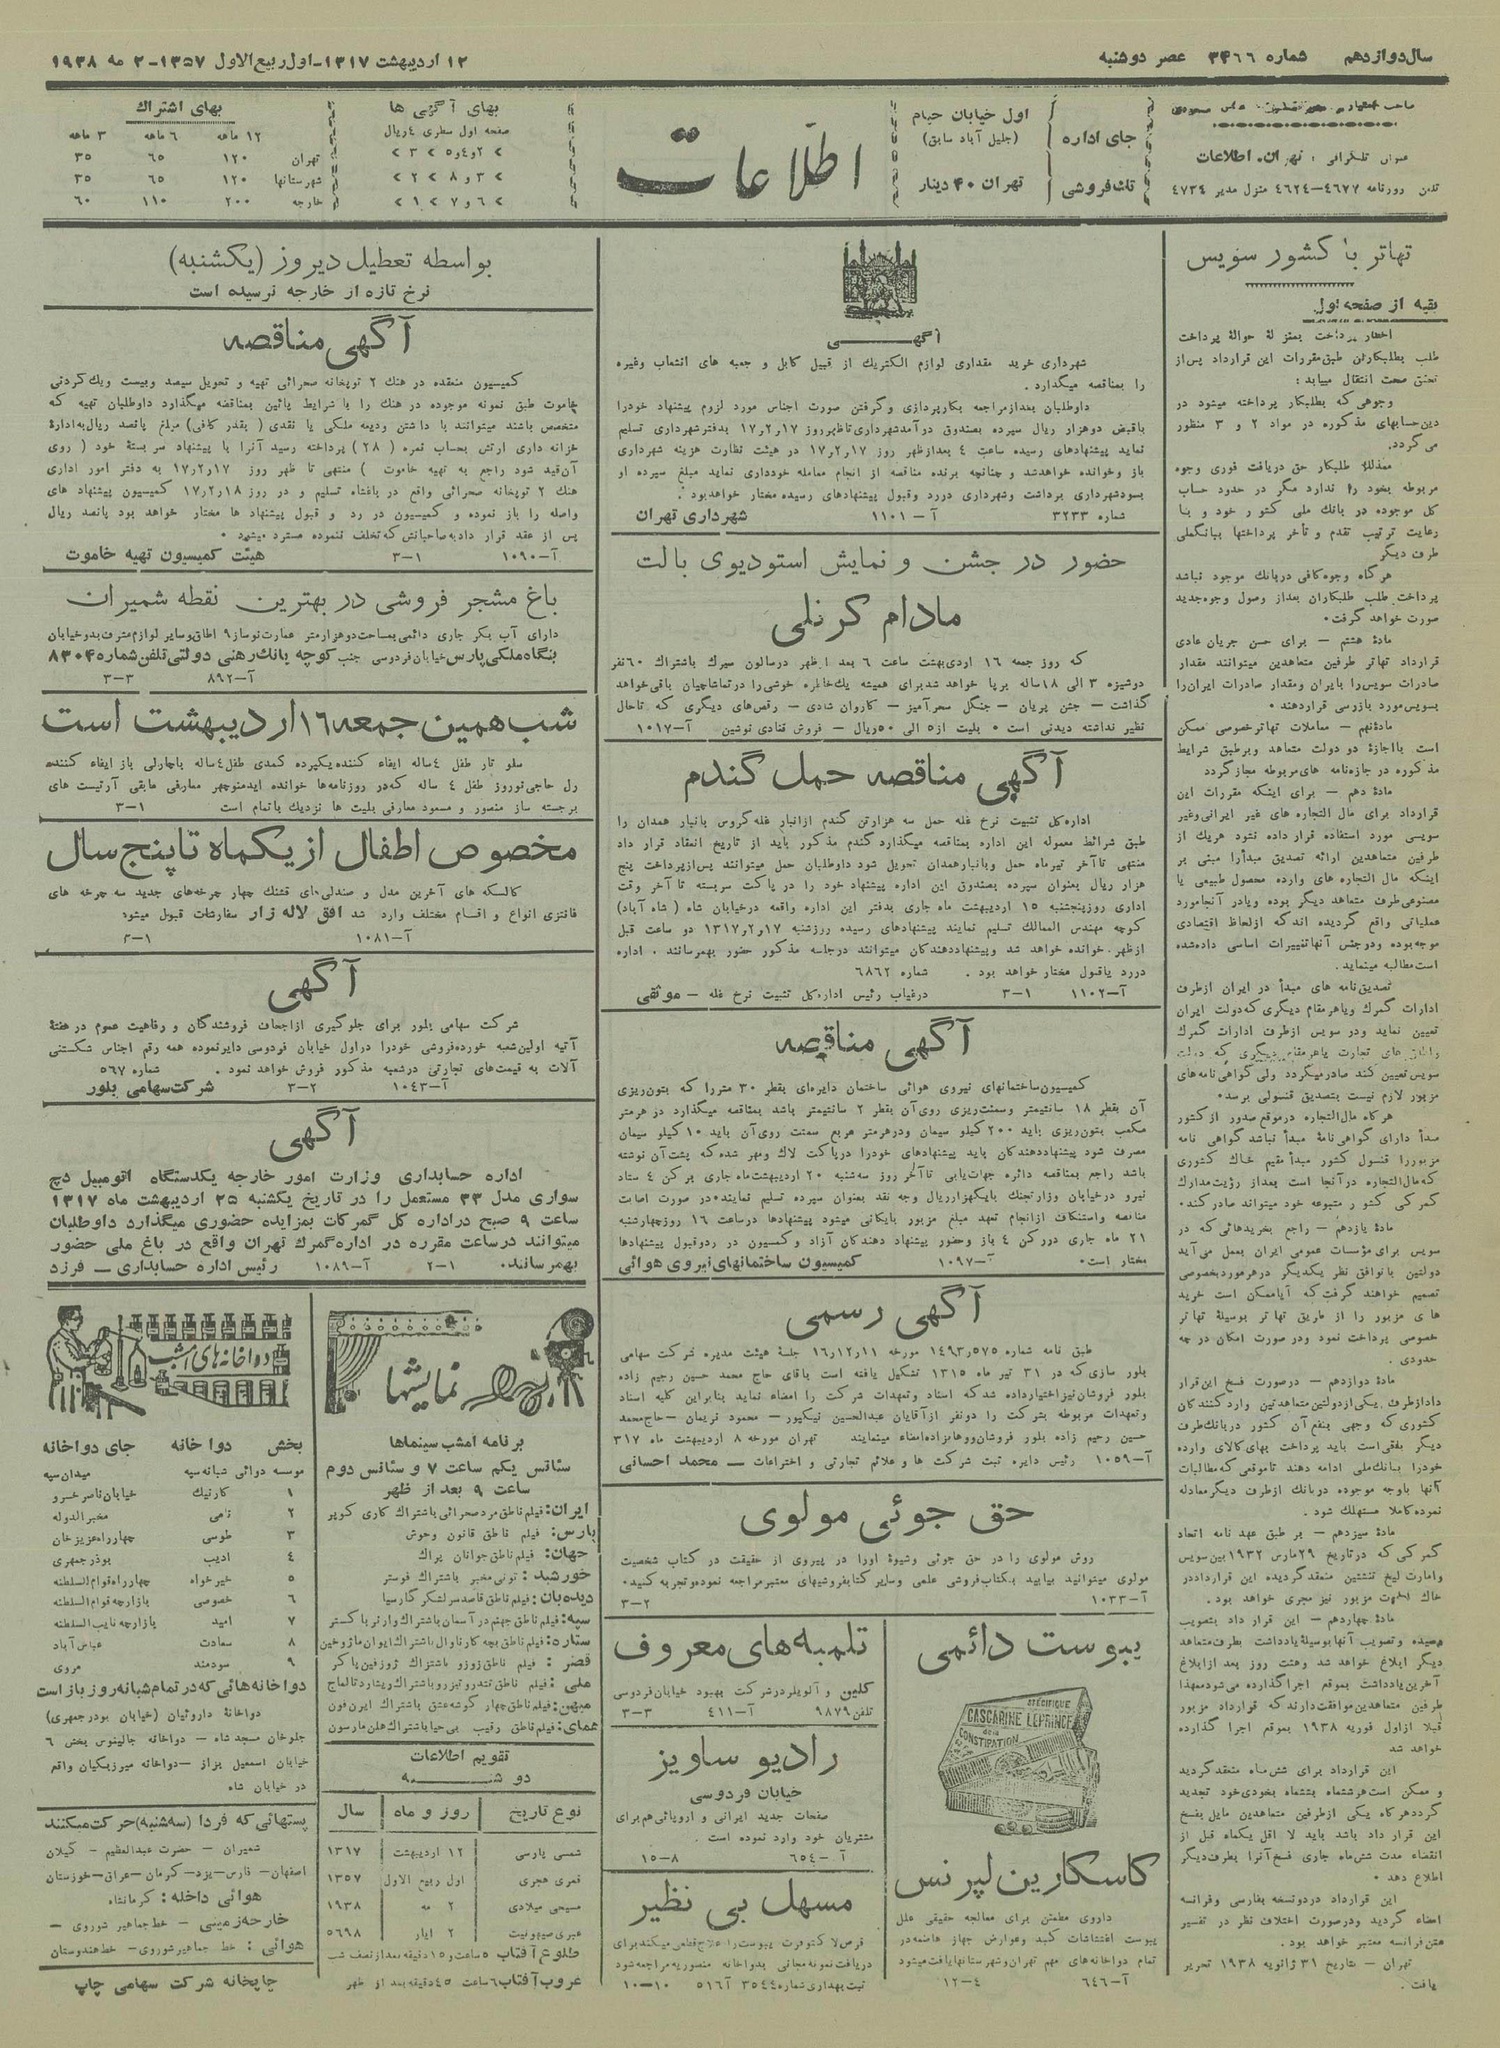 سال دوازدهم شماره ۳۴۶۶ عصر دوشنبه
۱۲ اردیبهشت ۱۳۱۷-اول ربیع الاول ۱۳۵۷-۲ مه ۱۹۳۸
عنوان تلگرافی : تهران. اطلاعات
تلفن روزنامه ۴۶۷۷-۴۶۲۴ منزل مدیر ۴۷۳۴
جای اداره
اول خیابان خیام
(جلیل آباد سابق)
تک فروشی
تهران ۴۰ دینار
اطلاعات
بهای آگهی ها
صفحه اول سطری ۴ ریال
بهای اشتراك
۱۲ ماهه ۶ ماهه ۳ ماهه
تهران ۱۲۰ ۶۵ ۳۵
شهرستانها ۱۲۰ ۶۵ ۳۵
خارجه ۲۰۰ ۱۱۰ ۶۰
تهاتر با کشور سویس
بقیه از صفحه اول
طلب بطلبکار طبق مقررات این قرارداد پس از
تحقق صحت انتقال مییابد :
وجوهی که بطلبکار پرداخته میشود در
حسابهای مذکوره در مواد ۲ و ۳ منظور
می گردد.
معذلك طلبکار حق دریافت فوری وجوه
مربوطه بخود را ندارد مگر در حدود حساب
کل موجوده در بانك ملی کشور خود و با
رعایت ترتیب تقدم و تأخر پرداختها ببانك ملی
طرف دیگر
هر گاه وجوه کافی در بانك موجود نباشد
پرداخت طلب طلبکاران بعد از وصول وجوه جدید
صورت خواهد گرفت.
مادهٔ هشتم - برای حسن جریان عادی
قرارداد تهاتر طرفین متعاهدین میتوانند مقدار
صادرات سویس را بایران و مقدار صادرات ایران را
بسویس مورد بازرسی قرار دهند.
مادهٔ نهم - معاملات تهاتر خصوصی ممکن
است با اجازهٔ دو دولت متعاهد و بر طبق شرایط
مذکوره در جازه نامه های مربوطه مجاز گردد
مادهٔ دهم - برای اینکه مقررات این
قرارداد برای مال التجاره های غیر ایرانی و غیر
سویسی مورد استفاده قرار داده نشود هر یك از
طرفین متعاهدین ارائه تصدیق مبدأ را مبنی بر
اینکه مال التجاره های وارده محصول طبیعی یا
مصنوعی طرف متعاهد دیگر بوده و یا در آنجا مورد
عملیاتی واقع گردیده اند که از لحاظ اقتصادی
موجه بوده و در جنس آنها تغییرات اساسی داده شده
است مطالبه مینماید.
تصدیق نامه های مبدأ در ایران از طرف
ادارات گمرك و یا هر مقام دیگری که دولت ایران
تعیین نماید و در سویس از طرف ادارات گمرك
واطاق های تجارت یا هر مقام دیگری که دولت
سویس تعیین کند صادر میگردد ولی گواهی نامه های
مزبور لازم نیست بتصدیق قنسولی برسد.
هر گاه مال التجاره در موقع صدور از کشور
مبدأ دارای گواهی نامهٔ مبدأ نباشد گواهی نامه
مزبور را قنسول کشور مبدأ مقیم خاك کشوری
که مال التجاره در آنجا است بعد از رؤیت مدارك
گمرکی کشور متبوعه خود میتواند صادر کند.
مادهٔ یازدهم - راجع بخریدهائی که در
سویس برای مؤسسات عمومی ایران بعمل می آید
دولتین با توافق نظر یکدیگر در هر مورد بخصوصی
تصمیم خواهند گرفت که آیا ممکن است خرید
های مزبور را از طریق تهاتر بوسیلهٔ تهاتر
خصوصی پرداخت نمود و در صورت امکان در چه
حدودی .
مادهٔ دوازدهم - در صورت فسخ این قرار
داد از طرف یکی از دولتین متعاهدین وارد کنندگان
کشوری که وجهی بنفع آن کشور در بانك طرف
دیگر باقی است باید پرداخت بهای کالای وارده
خود را ببانك ملی ادامه دهند تا موقعی که مطالبات
آنها با وجه موجوده در بانك از طرف دیگر معادله
نموده کاملا مستهلك شود .
مادهٔ سیزدهم - بر طبق عهد نامه اتحاد
گمرکی که در تاریخ ۲۹ مارس ۱۹۲۳ بین سویس
وامارت لیختن شتین منعقد گردیده این قرارداد در
خاك امارت مزبور نیز مجری خواهد بود.
مادهٔ چهاردهم - این قرار داد بتصویب
رسیده و تصویب آنها بوسیلهٔ یادداشت بطرف متعاهد
دیگر ابلاغ خواهد شد و هشت روز بعد از ابلاغ
آخرین یادداشت بموقع اجرا گذارده می شود معهذا
طرفین متعاهدین موافقت دارند که قرارداد مزبور
قبلا از اول فوریه ۱۹۳۸ بموقع اجرا گذارده
خواهد شد
این قرارداد برای شش ماه منعقد گردید
و ممکن است هر شش ماه بششماه بخودی خود تجدید
گردد هر گاه یکی از طرفین متعاهدین مایل بفسخ
این قرار داد باشد باید لا اقل یکماه قبل از
انقضاء مدت شش ماه جاری فسخ آنرا بطرف دیگر
اطلاع دهد .
این قرارداد در دو نسخه بفارسی و فرانسه
امضاء گردید و در صورت اختلاف نظر در تفسیر
متن فرانسه معتبر خواهد بود .
تهران - بتاریخ ۳۱ ژانویه ۱۹۳۸ تحریر
یافت .
آگهی
شهرداری خرید مقداری لوازم الکتریك از قبیل کابل و جعبه های انشعاب وغیره
را بمناقصه میگذارد .
داوطلبان بعد از مراجعه بکارپردازی وگرفتن صورت اجناس مورد لزوم پیشنهاد خود را
باقبض دوهزار ریال سپرده بصندوق درآمد شهرداری تا ظهر روز ۱۷ر۲ر۱۷ بدفتر شهرداری تسلیم
نماید پیشنهادهای رسیده ساعت ۴ بعد از ظهر روز ۱۷ر۲ر۱۷ در هیئت نظارت هزینه شهرداری
باز و خوانده خواهد شد و چنانچه برنده مناقصه از انجام معامله خودداری نماید مبلغ سپرده او
بسود شهرداری برداشت وشهرداری در رد وقبول پیشنهادهای رسیده مختار خواهد بود .
شماره ۳۲۳۳ آ-۱۱۰۱ شهرداری تهران
حضور در جشن و نمایش استودیوی بالت
مادام کرنلی
که روز جمعه ۱۶ اردیبهشت ساعت ۶ بعد از ظهر در سالون سیرك باشتراك ۶۰ نفر
دوشیزه ۳ الی ۱۸ ساله برپا خواهد شد برای همیشه یك خاطره خوشی را در تماشاچیان باقی خواهد
گذاشت - جشن پریان - جنگل سحر آمیز - کاروان شادی - رقص های دیگری که تاحال
نظیر نداشته دیدنی است . بلیت از ۵ الی ۵۰ ریال - فروش قنادی نوشین آ-۱۰۱۷
آگهی مناقصه حمل گندم
اداره کل تثبیت نرخ غله حمل سه هزار تن گندم از انبار غله گروس بانبار همدان را
طبق شرائط معموله این اداره بمناقصه میگذارد گندم مذکور باید از تاریخ انعقاد قرار داد
منتهی تا آخر تیر ماه حمل وبانبار همدان تحویل شود داوطلبان حمل میتوانند پس از پرداخت پنج
هزار ریال بعنوان سپرده بصندوق این اداره پیشنهاد خود را در پاکت سربسته تا آخر وقت
اداری روز پنجشنبه ۱۵ اردیبهشت ماه جاری بدفتر این اداره واقعه در خیابان شاه ( شاه آباد)
کوچه مهندس الممالك تسلیم نمایند پیشنهادهای رسیده روز شنبه ۱۷ر۲ر۱۳۱۷ دو ساعت قبل
از ظهر خوانده خواهد شد وپیشنهاد دهندگان میتوانند در جلسه مذکور حضور بهمرسانند . اداره
در رد یا قبول مختار خواهد بود . شماره ۶۸۶۲
آ-۱۱۰۲ ۱-۳ در غیاب رئیس اداره کل تثبیت نرخ غله - موثقی
آگهی مناقصه
کمیسیون ساختمانهای نیروی هوائی ساختمان دایره ای بقطر ۳۰ متر را که بتون ریزی
آن بقطر ۱۸ سانتیمتر وسمنت ریزی روی آن بقطر ۲ سانتیمتر باشد بمناقصه میگذارد در هر متر
مکعب بتون ریزی باید ۲۰۰ کیلو سیمان ودر هر متر مربع سمنت روی آن باید ۱۰ کیلو سیمان
مصرف شود پیشنهاد دهندگان باید پیشنهادهای خود را در پاکت لاك و مهر شده که پشت آن نوشته
باشد راجع بمناقصه دائره جهات یابی تا آخر روز سه شنبه ۲۰ اردیبهشت ماه جاری بر کن ۴ ستاد
نیرو در خیابان وزارتجنگ بایکهزار ریال وجه نقد بعنوان سپرده تسلیم نمایند. در صورت اصابت
مناقصه واستنکاف از انجام تعهد مبلغ مزبور بایگانی میشود پیشنهادها در ساعت ۱۶ روز چهارشنبه
۲۱ ماه جاری در رکن ۴ باز وحضور پیشنهاد دهندگان آزاد وکمیسون در رد وقبول پیشنهادها
مختار است. آ-۱۰۹۷ کمیسیون ساختمانهای نیروی هوائی
آگهی رسمی
طبق نامه شماره ۵۷۵ر۱۴۹۳ مورخه ۱۱ر۱۲ر۱۶ جلسهٔ هیئت مدیره شرکت سهامی
بلور سازی که در ۳۱ تیر ماه ۱۳۱۵ تشکیل یافته است باقای حاج محمد حسین رحیم زاده
بلور فروشان نیز اختیار داده شد که اسناد وتعهدات شرکت را امضاء نماید بنابر این کلیه اسناد
وتعهدات مربوطه بشرکت را دو نفر از آقایان عبدالحسین نیکپور - محمود نریمان - حاج محمد
حسین رحیم زاده بلور فروشان ووهابزاده امضاء مینمایند تهران مورخه ۸ اردیبهشت ماه ۳۱۷
آ-۱۰۵۹ رئیس دایره ثبت شرکت ها و علائم تجارتی و اختراعات - محمد احسانی
حق جوئی مولوی
روش مولوی را در حق جوئی وشیوهٔ اورا در پیروی از حقیقت در کتاب شخصیت
مولوی میتوانید بیابید بکتابفروشی علمی وسایر کتابفروشیهای معتبر مراجعه نموده و تجربه کنید.
آ-۱۰۳۳ ۲-۳
یبوست دائمی
SPÉCIFIQUE
CASCARINE LEPRINCE
de la
CONSTIPATION
کاسکارین لپرنس
داروی مطمئن برای معالجه حقیقی علل
یبوست اغتشاشات کبد وعوارض جهاز هاضمه در
تمام دواخانه های مهم تهران و شهرستانها یافت میشود
آ-۶۴۶ ۴-۱۲
تلمبه های معروف
کلین و آلویلر در شرکت بهبود خیابان فردوسی
تلفن ۹۸۷۹ آ-۴۱۱ ۳-۳
رادیو ساویز
خیابان فردوسی
صفحات جدید ایرانی و اروپائی هم برای
مشتریان خود وارد نموده است .
آ-۶۵۴ ۸-۱۵
مسهل بی نظیر
قرص لاکتوفرت یبوست را علاج قطعی میکند برای
دریافت نمونه مجانی بدواخانه منصوریه مراجعه شود
ثبت بهداری شماره ۳۵۴۴ آ۵۱۶ ۱۰-۱۰
بواسطه تعطیل دیروز (یکشنبه)
نرخ تازه از خارجه نرسیده است
آگهی مناقصه
کمیسیون منعقده در هنك ۲ توپخانه صحرائی تهیه و تحویل سیصد وبیست ویك گردنی
خاموت طبق نمونه موجوده در هنك را با شرایط پائین بمناقصه میگذارد داوطلبان تهیه که
متخصص باشند میتوانند با داشتن ودیعه ملکی یا نقدی ( بقدر کافی) مبلغ پانصد ریال به ادارهٔ
خزانه داری ارتش بحساب نمره (۲۸) پرداخته رسید آنرا با پیشنهاد سر بستهٔ خود ( روی
آن قید شود راجع به تهیه خاموت ) منتهی تا ظهر روز ۱۷ر۲ر۱۷ به دفتر امور اداری
هنك ۲ توپخانه صحرائی واقع در باغشاه تسلیم و در روز ۱۸ر۲ر۱۷ کمیسیون پیشنهاد های
واصله را باز نموده و کمیسیون در رد و قبول پیشنهاد ها مختار خواهد بود پانصد ریال
پس از عقد قرار داد به صاحبانش که تخلف ننموده مسترد میشود .
آ-۱۰۹۰ ۱-۳ هیئت کمیسیون تهیه خاموت
باغ مشجر فروشی در بهترین نقطه شمیران
دارای آب بکر جاری دائمی بمساحت دو هزار متر عمارت نوساز ۹ اطاق وسایر لوازم مشرف بدو خیابان
بنگاه ملکی پارس خیابان فردوسی جنب کوچه بانك رهنی دولتی تلفن شماره ۸۳۰۴
آ-۸۹۲ ۳-۳
شب همین جمعه ۱۶ اردیبهشت است
سلو تار طفل ۴ ساله ایفاء کننده یکپرده کمدی طفل ۴ ساله باچارلی باز ایفاء کننده
رل حاجی نوروز طفل ۴ ساله که در روزنامه ها خوانده اید منوچهر معارفی مابقی آرتیست های
برجسته ساز منصور و مسعود معارفی بلیت ها نزدیك باتمام است ۱-۳
مخصوص اطفال از یکماه تا پنج سال
کالسکه های آخرین مدل و صندلی های قشنك چهار چرخه های جدید سه چرخه های
فانتزی انواع و اقسام مختلف وارد شد افق لاله زار سفارشات قبول میشود
آ-۱۰۸۱ ۱-۲
آگهی
شرکت سهامی بلور برای جلوگیری از اجحاف فروشندگان و رفاهیت عموم در هفتهٔ
آتیه اولین شعبه خورده فروشی خود را در اول خیابان فردوسی دایر نموده همه رقم اجناس شکستنی
آلات به قیمت های تجارتی در شعبه مذکور فروش خواهد نمود . شماره ۵۶۷
آ-۱۰۴۳ ۲-۳ شرکت سهامی بلور
آگهی
اداره حسابداری وزارت امور خارجه یکدستگاه اتومبیل دچ
سواری مدل ۳۳ مستعمل را در تاریخ یکشنبه ۲۵ اردیبهشت ماه ۱۳۱۷
ساعت ۹ صبح در اداره کل گمرکات بمزایده حضوری میگذارد داوطلبان
میتوانند در ساعت مقرره در اداره گمرك تهران واقع در باغ ملی حضور
بهمرسانند. ۱-۲ آ-۱۰۸۹ رئیس اداره حسابداری - فرزد
نمایشها
برنامه امشب سینماها
سئانس یکم ساعت ۷ و سئانس دوم
ساعت ۹ بعد از ظهر
ایران: فیلم ناطق مرد صحرائی باشتراك کاری کوپر
پارس: فیلم ناطق قانون وحوش
جهان: فیلم ناطق جوانان پراك
خورشید: تونی مخبر باشتراك فوستر
دیده بان: فیلم ناطق قاصد سر لشگر گارسیا
سپه: فیلم ناطق جهنم در آسمان باشتراك وارنر باکستر
ستاره: فیلم ناطق بچه کارناوال باشتراك ایوان ماژوخین
قصر : فیلم ناطق زوزو باشتراك ژوزفین باکر
ملی: فیلم ناطق تندرو تبزرو باشتراك ریشارد تالماج
میهن: فیلم ناطق چهار گوشه عشق باشتراك ایرن فون
همای: فیلم ناطق رقیب بی حیا باشتراك هلن مارسون
تقویم اطلاعات
دوشنبه
نوع تاریخ روز و ماه سال
شمسی پارسی ۱۲ اردیبهشت ۱۳۱۷
قمری هجری اول ربیع الاول ۱۳۵۷
مسیحی میلادی ۲ مه ۱۹۳۸
عبری صیهونیت ۲ ایار ۵۶۹۸
طلوع آفتاب ۵ ساعت و ۱۵ دقیقه بعد از نصف شب
غروب آفتاب ۶ ساعت ۴۵ دقیقه بعد از ظهر
دواخانه های امشب
بخش دواخانه جای دواخانه
موسسه دوائی شبانه سپه میدان سپه
۱ کارنیك خیابان ناصر خسرو
۲ نامی مخبر الدوله
۳ طوسی چهار راه عزیز خان
۴ ادیب بوذرجمهری
۵ خیرخواه چهار راه قوام السلطنه
۶ خصوصی بازارچه قوام السلطنه
۷ امید بازارچه نایب السلطنه
۸ سعادت عباس آباد
۹ سودمند مروی
دواخانه هائی که در تمام شبانه روز باز است
دواخانهٔ داروئیان (خیابان بوذرجمهری)
جلوخان مسجد شاه - دواخانه جالینوس بخش ۶
خیابان اسمعیل بزاز - دواخانه میرزیکیان واقع
در خیابان شاه
پستهائی که فردا (سه شنبه) حرکت میکنند
شمیران - حضرت عبدالعظیم - گیلان
اصفهان - فارس - یزد - کرمان - عراق - خوزستان
هوائی داخله : کرمانشاه
خارجه زمینی - خط جماهیر شوروی -
هوائی : خط جماهیر شوروی - خط هندوستان
چاپخانه شرکت سهامی چاپ